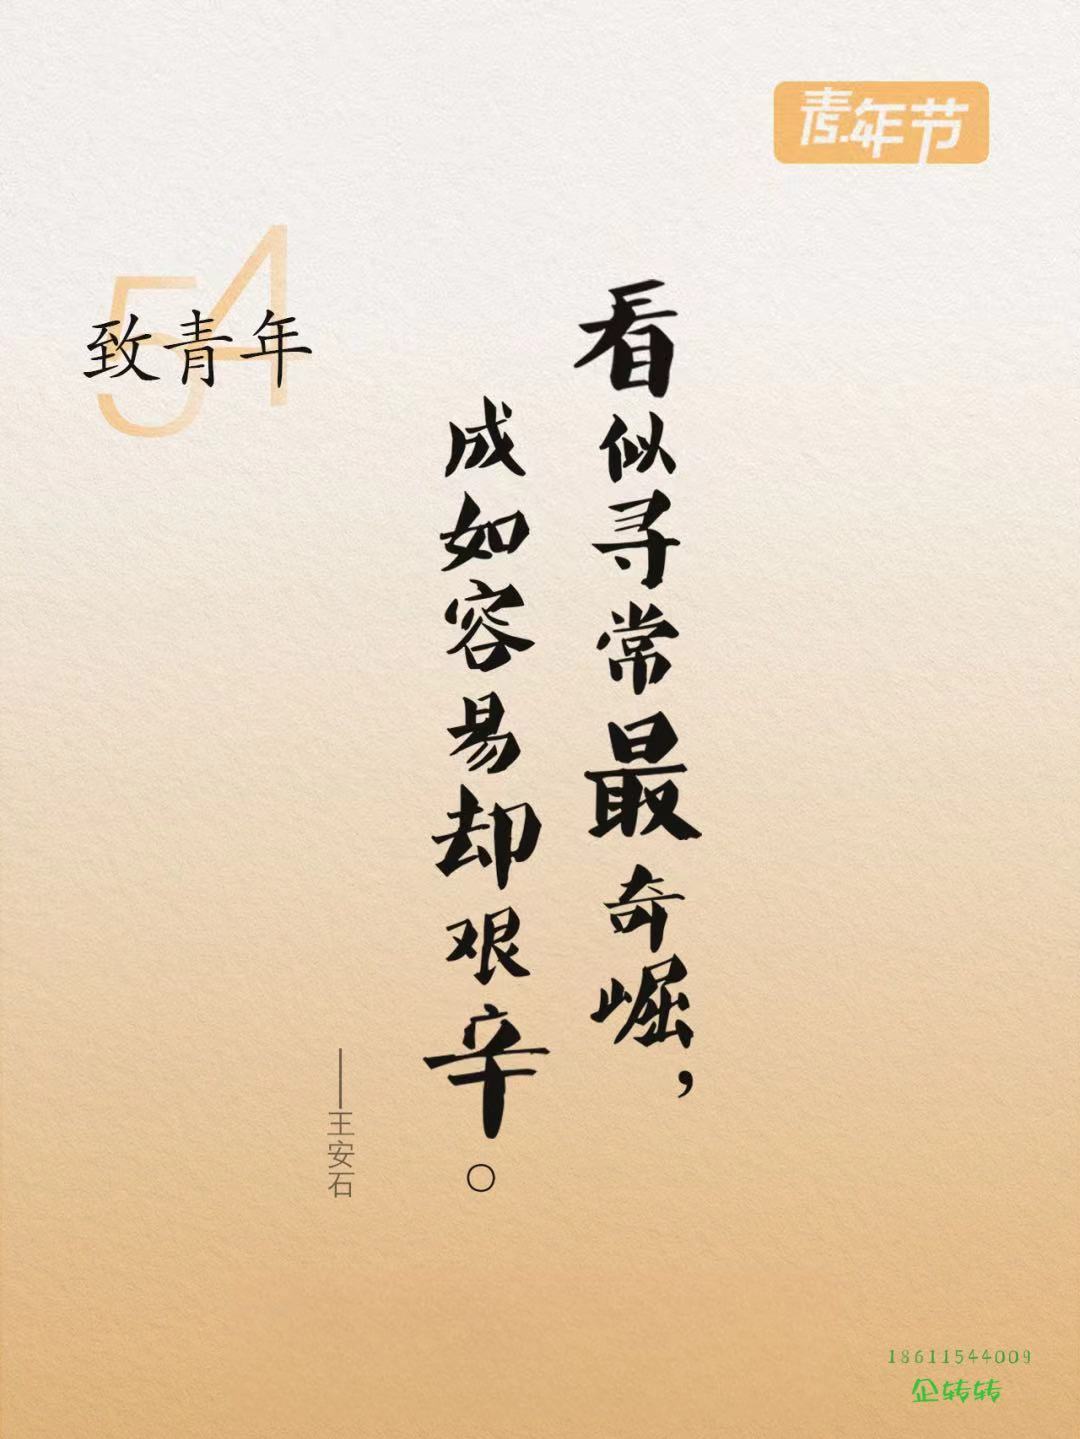 青年节
54
致青年
看似寻常最奇崛，
成如容易却艰辛。
——王安石
18611544009
企转转